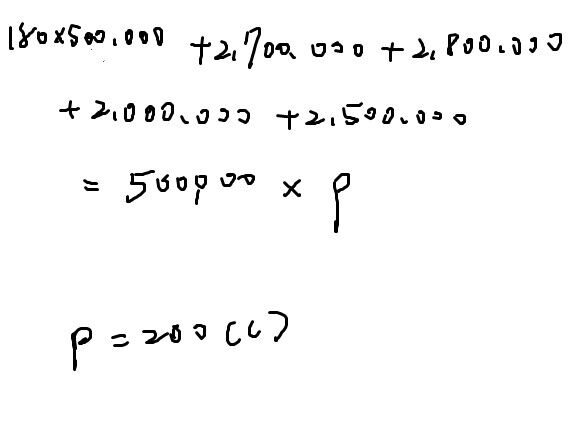 180×500.000 +2,700.000 + 2,800.000
+ 2,000.000 + 2,500.000
= 500,000 × P
P = 200 (C)